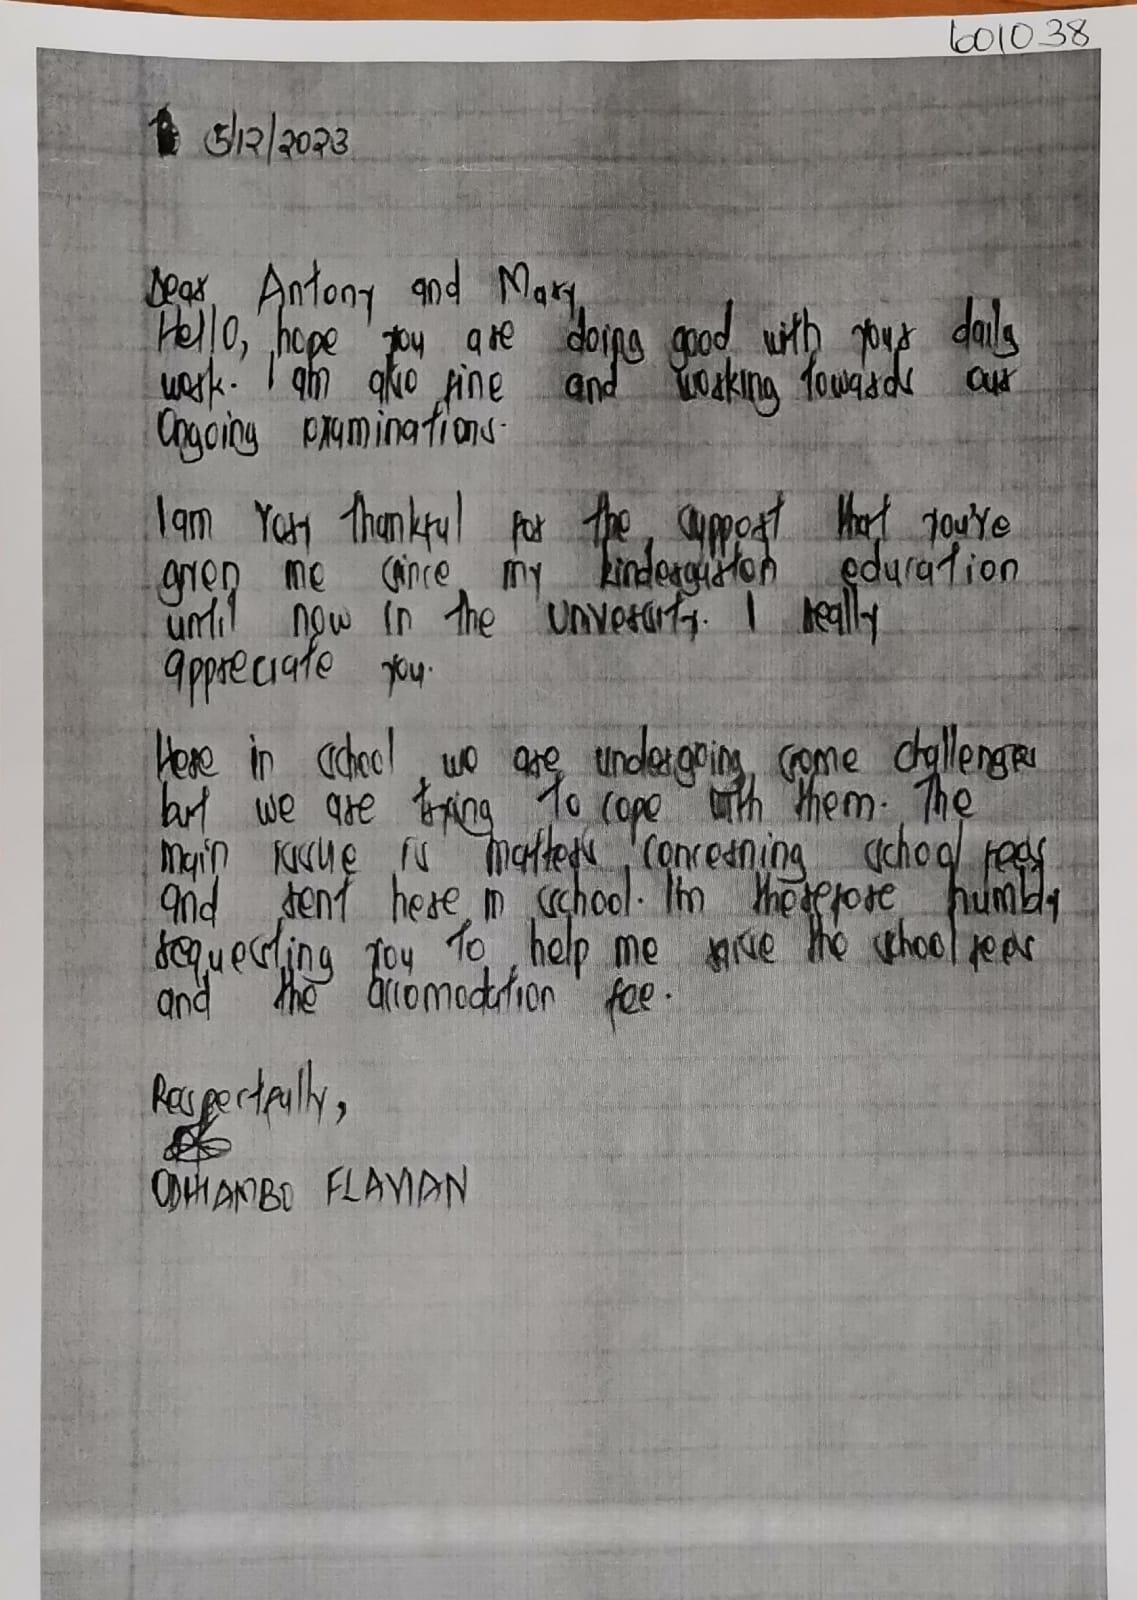 601038
5/12/2023
Dear Antony and Mary,
Hello, hope you are doing good with your daily
work. I am also fine and working towards our
Ongoing examinations.
I am Very thankful for the support that you've
given me since my kindergarten education
until now in the university. I really
appreciate you.
Here in school we are undergoing some challenges
but we are trying to cope with them. The
main issue is matters concerning school fees
and rent here in school. I'm therefore humbly
requesting you to help me raise the school fees
and the accomodation fee.
Respectfully,
ODHIAMBO FLAVIAN